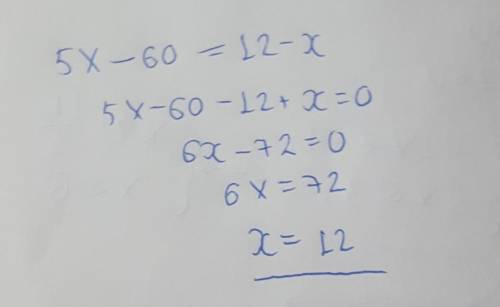 5x-60 = 12-x
5x-60-12+x=0
6x-72=0
6x=72
x= 12